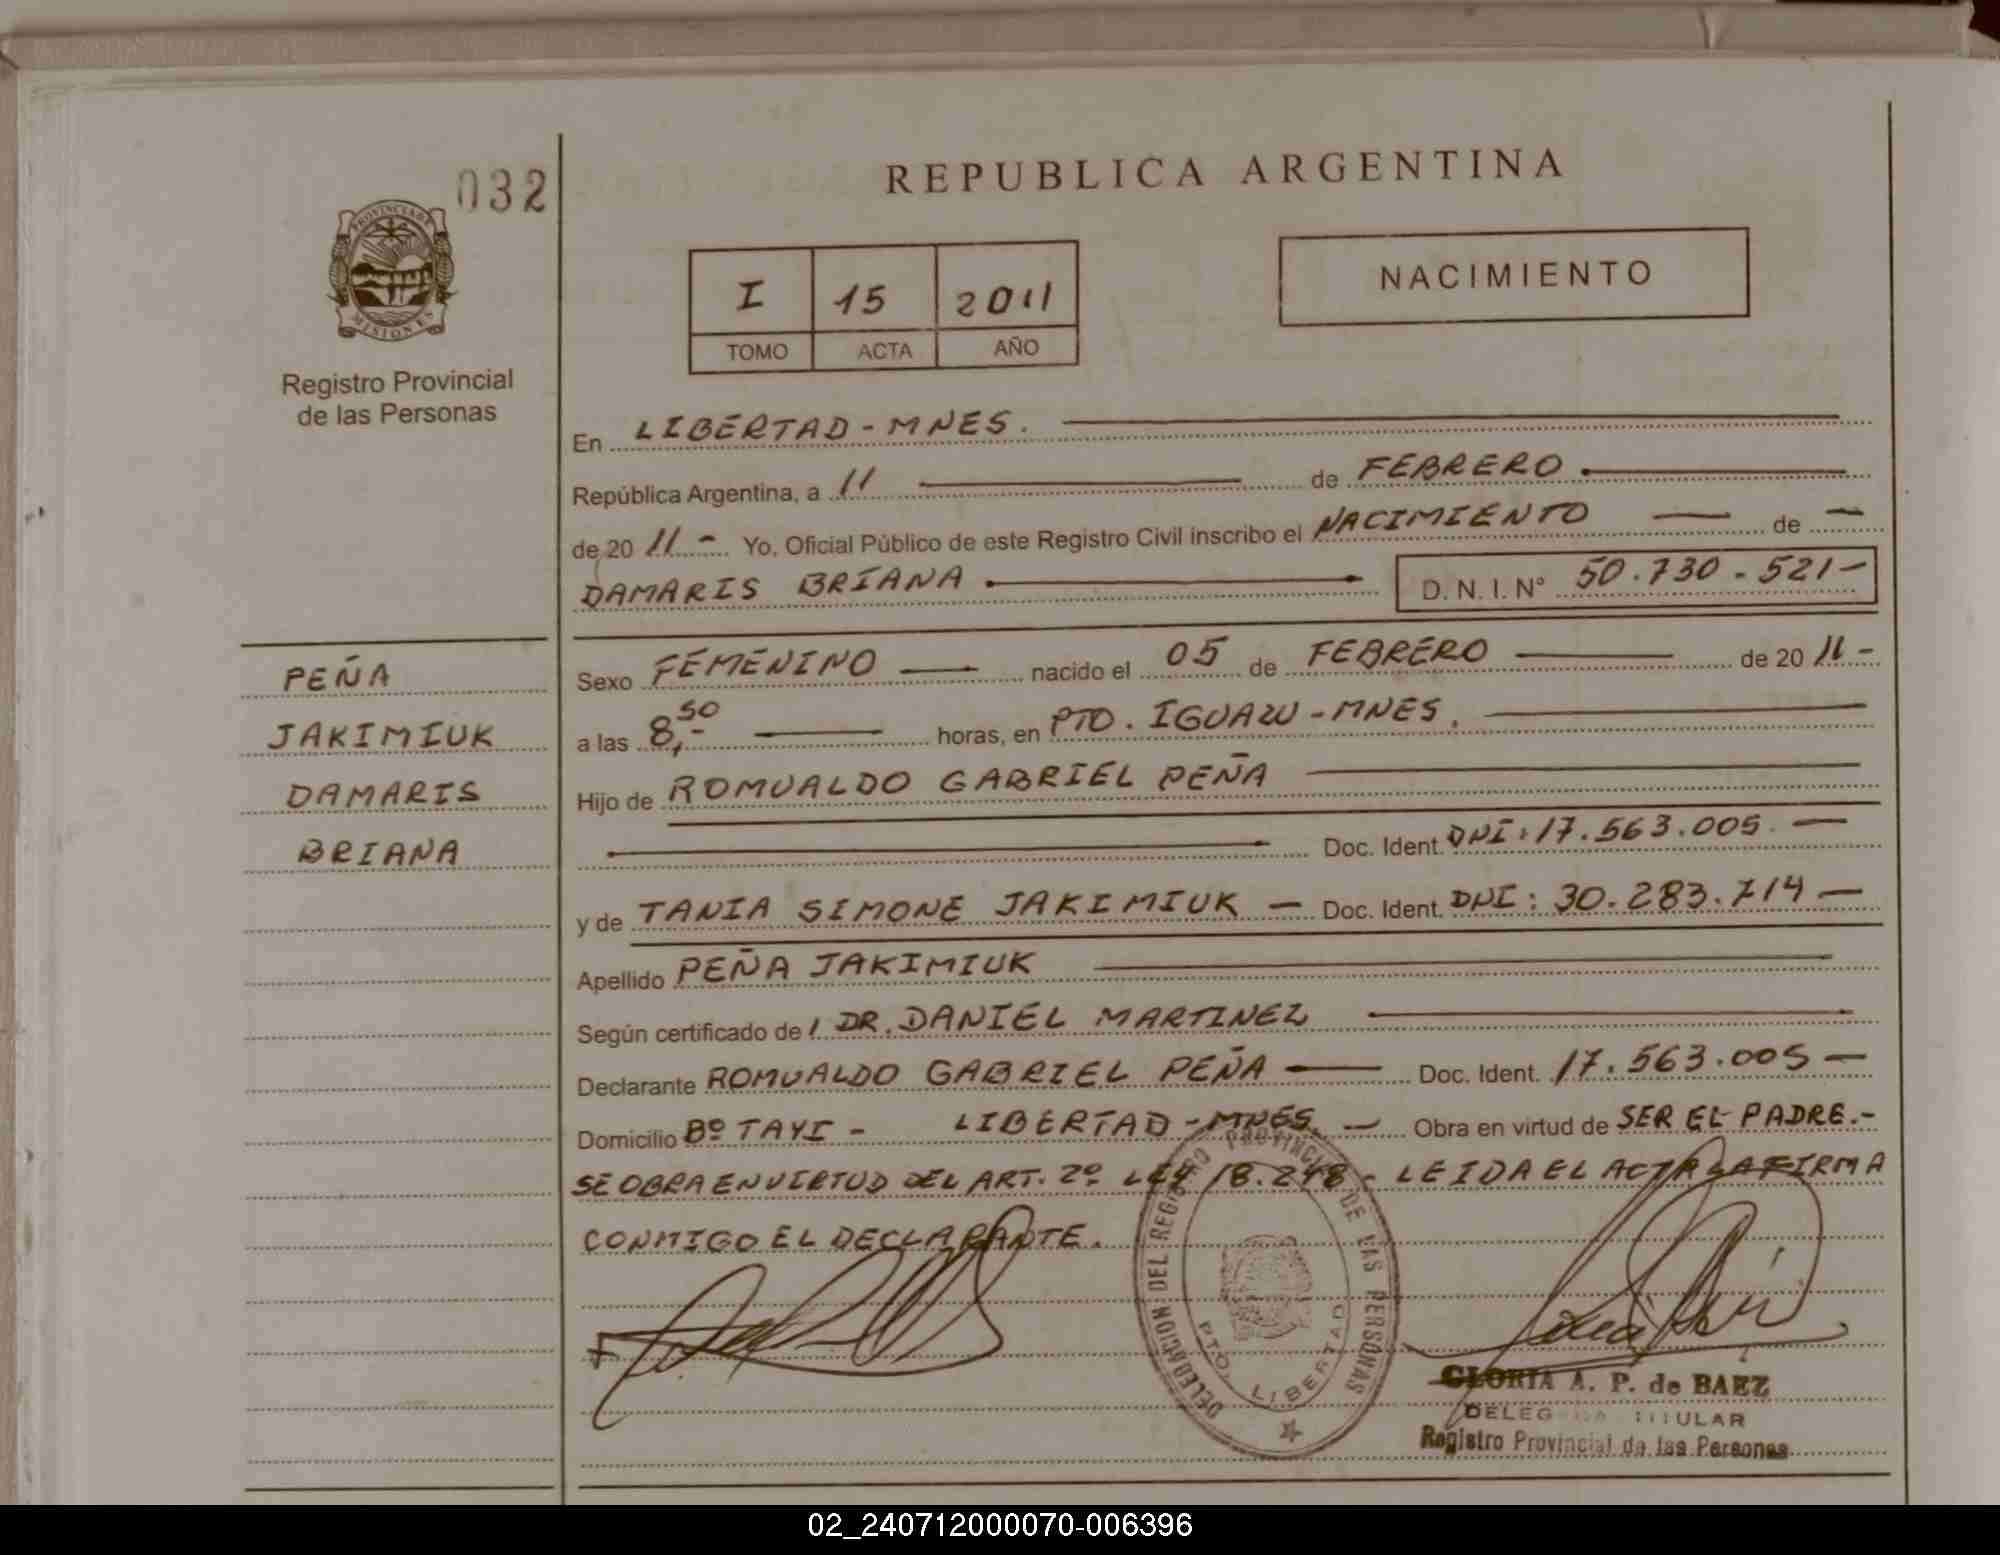 032
PROVINCIA DE
MISIONES
Registro Provincial
de las Personas
REPUBLICA ARGENTINA
I 15 2011
TOMO ACTA AÑO
NACIMIENTO
En LIBERTAD - MNES.
República Argentina, a 11 de FEBRERO
de 2011 - Yo, Oficial Público de este Registro Civil inscribo el NACIMIENTO — de —
DAMARIS BRIANA D. N. I. Nº 50.730.521-
PEÑA
JAKIMIUK
DAMARIS
BRIANA
Sexo FEMENINO — nacido el 05 de FEBRERO — de 2011 -
a las 8,50 — horas, en PTO. IGUAZU - MNES.
Hijo de ROMUALDO GABRIEL PEÑA
Doc. Ident. DNI: 17.563.005. —
y de TANIA SIMONE JAKIMIUK — Doc. Ident. DNI: 30.283.714 —
Apellido PEÑA JAKIMIUK
Según certificado de / DR. DANIEL MARTINEZ
Declarante ROMUALDO GABRIEL PEÑA — Doc. Ident. 17.563.005 —
Domicilio Bº TAYI - LIBERTAD - MNES. — Obra en virtud de SER EL PADRE.-
SE OBRA EN VIRTUD DEL ART. 2º LEY 18.248 - LEIDA EL ACTA LA FIRMA
CONMIGO EL DECLARANTE.
DELEGACION DEL REGISTRO PROVINCIAL DE LAS PERSONAS
PTO. LIBERTAD
GLORIA A. P. de BAEZ
DELEGADA TITULAR
Registro Provincial de las Personas
02_240712000070-006396